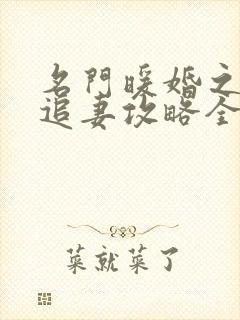 名門暖婚之
追妻攻略全
菜就菜了